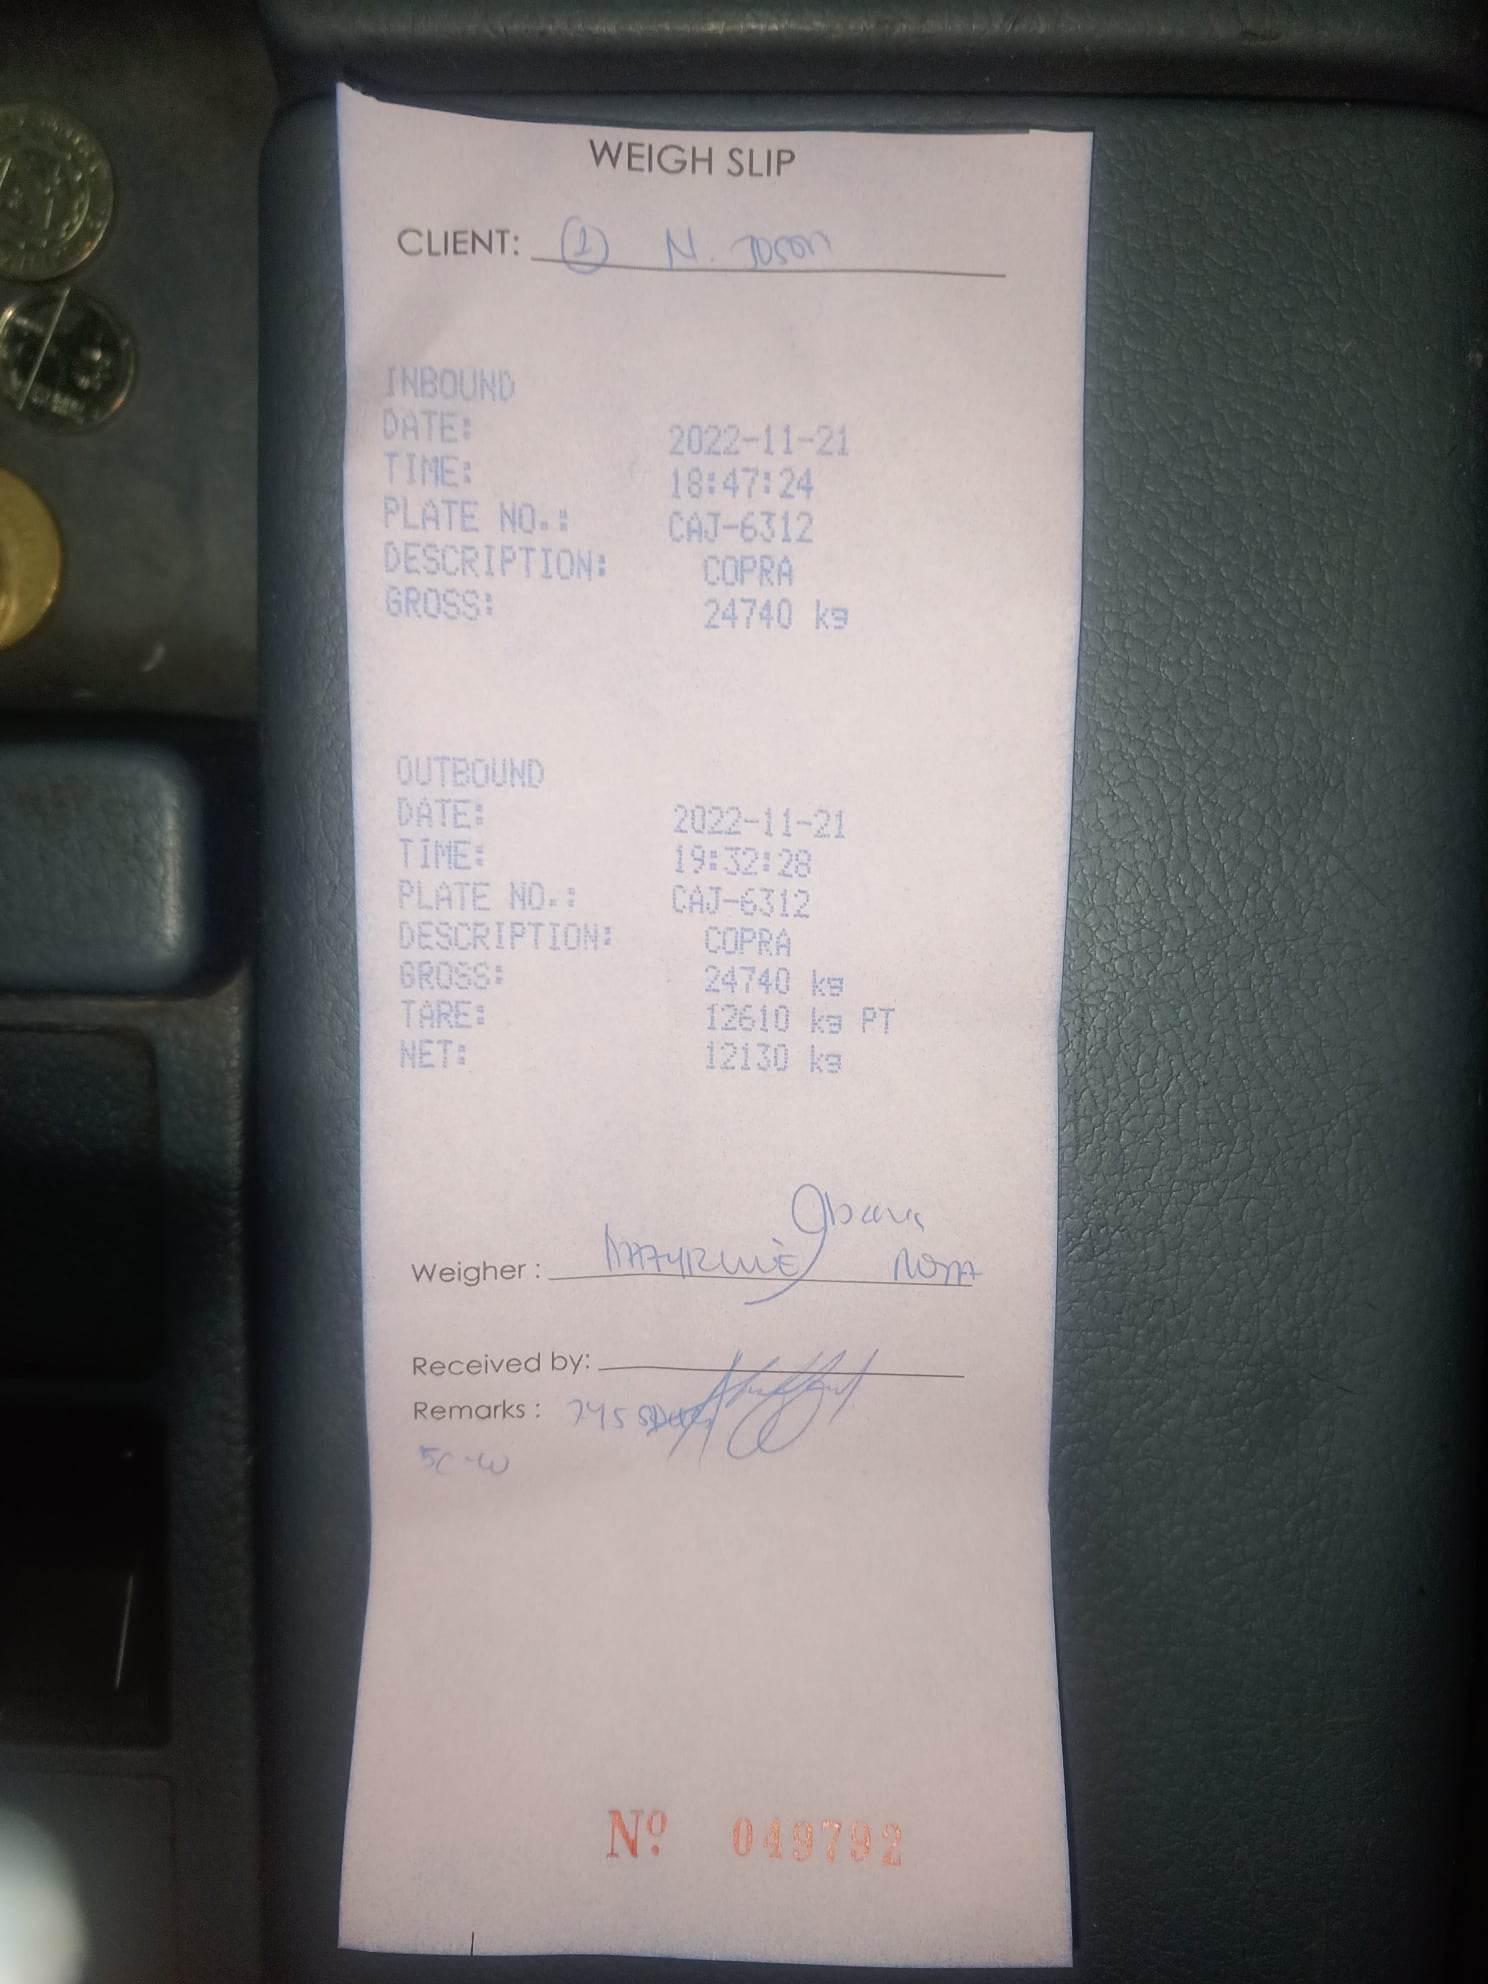 WEIGH SLIP
CLIENT: (1) N. Joson
INBOUND
DATE: 2022-11-21
TIME: 18:47:24
PLATE NO.: CAJ-6312
DESCRIPTION: COPRA
GROSS: 24740 kg
OUTBOUND
DATE: 2022-11-21
TIME: 19:32:28
PLATE NO.: CAJ-6312
DESCRIPTION: COPRA
GROSS: 24740 kg
TARE: 12610 kg PT
NET: 12130 kg
Weigher :
Received by:
Remarks : 745
5C-W
Nº 049792